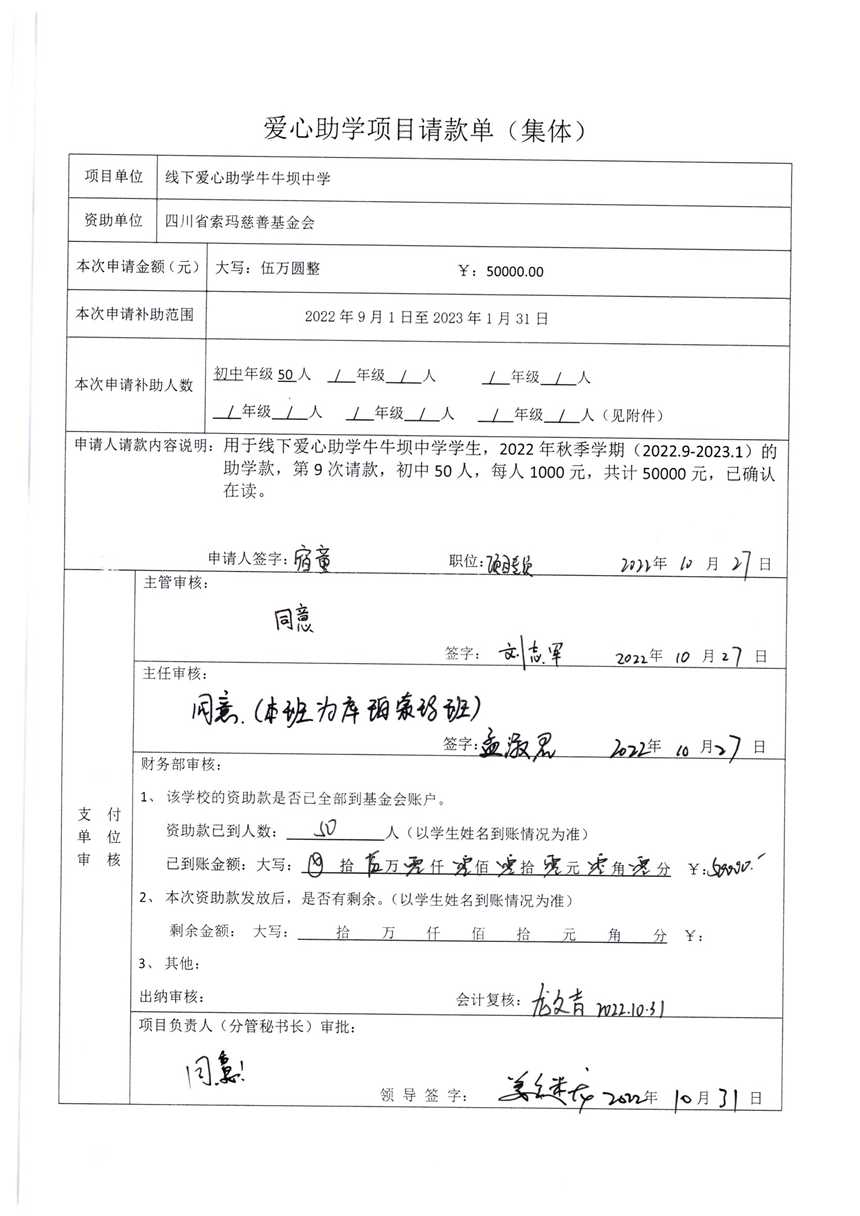 爱心助学项目请款单（集体）
项目单位 线下爱心助学牛牛坝中学
资助单位 四川省索玛慈善基金会
本次申请金额（元） 大写：伍万圆整 ￥：50000.00
本次申请补助范围 2022年9月1日至2023年1月31日
初中年级50人 /年级/人 /年级/人
本次申请补助人数
/年级/人 /年级/人 /年级/人（见附件）
申请人请款内容说明：用于线下爱心助学牛牛坝中学学生，2022年秋季学期（2022.9-2023.1）的
助学款，第9次请款，初中50人，每人1000元，共计50000元，已确认
在读。
申请人签字：宿童 职位：项目专员 2022年10月27日
主管审核：
同意
签字：刘志军 2022年10月27日
主任审核：
同意.（本班为库珀索玛班）
签字：孟淑君 2022年10月27日
财务部审核：
1、该学校的资助款是否已全部到基金会账户。
支付
单位
审核
资助款已到人数：50人（以学生姓名到账情况为准）
已到账金额：大写：⊗拾伍万零仟零佰零拾零元零角零分 ￥：50000.-
2、本次资助款发放后，是否有剩余。（以学生姓名到账情况为准）
剩余金额：大写： 拾 万 仟 佰 拾 元 角 分 ￥：
3、其他：
出纳审核： 会计复核： 2022.10.31
项目负责人（分管秘书长）审批：
同意！
领导签字： 2022年10月31日